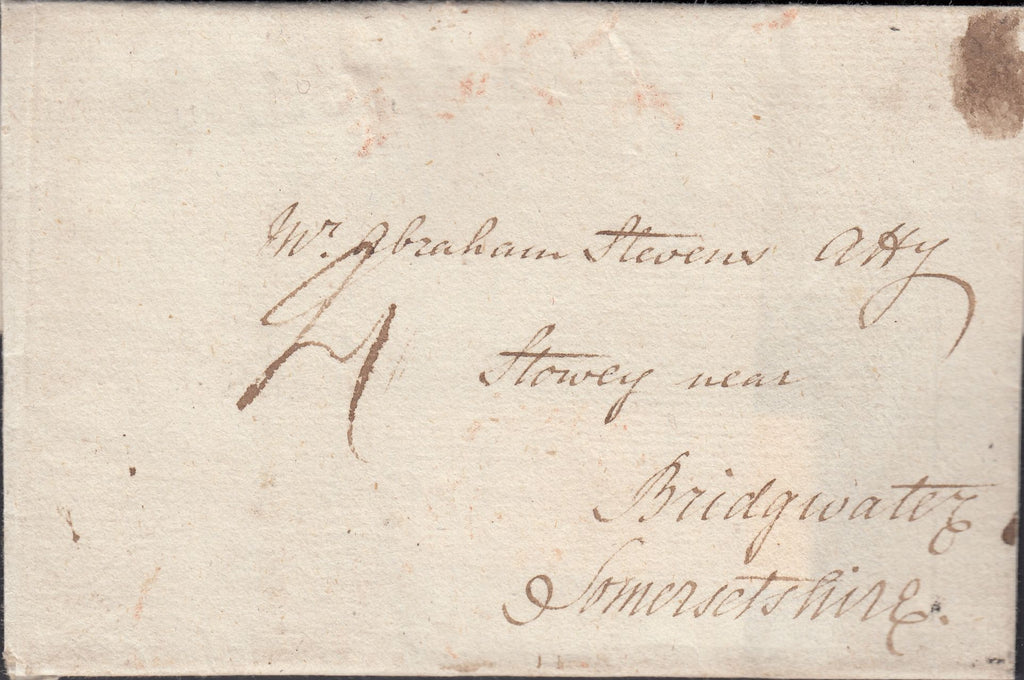 Mr. Abraham Stevens Atty
4
Stowey near
Bridgwater
Somersetshire.